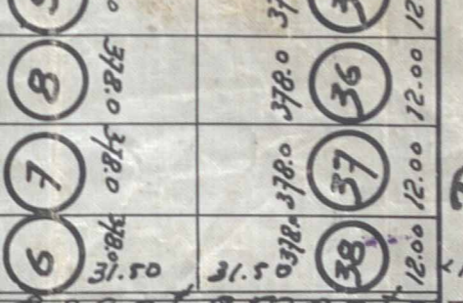 8 378.0 378.0 36 12.00
7 378.0 378.0 37 12.00
6 378.0 378.0 38 12.00
31.50 31.50